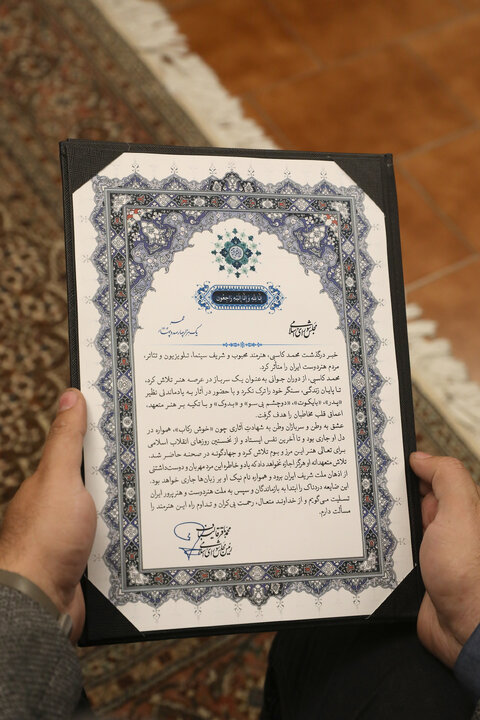 انا لله و انا الیه راجعون
مجلس شورای اسلامی
خبر درگذشت محمد کاسبی، هنرمند محبوب و شریف سینما، تلویزیون و تئاتر،
مردم هنردوست ایران را متأثر کرد.
محمد کاسبی، از دوران جوانی به‌عنوان یک سرباز در عرصه هنر تلاش کرد،
تا پایان زندگی، سنگر خود را ترک نکرد و با حضور در آثار به یادماندنی نظیر
«پدر»، «بایکوت»، «دوچشم بی‌سو» و «بدوک» و با تکیه بر هنر متعهد،
اعماق قلب مخاطبان را هدف گرفت.
عشق به وطن و سربازان وطن به شهادتِ آثاری چون «خوش رکاب»، همواره در
دل او جاری بود و تا آخرین نفس ایستاد و از نخستین روزهای انقلاب اسلامی
برای تعالی هنر این مرز و بوم تلاش کرد و جهادگونه در صحنه حاضر شد.
تلاش متعهدانه او هرگز اجازه نخواهد داد که یاد و خاطره این مرد مهربان و دوست‌داشتنی
از اذهان ملت شریف ایران برود و همواره نام نیک او بر زبان‌ها جاری خواهد بود.
این ضایعه دردناک را ابتدا به بازماندگان و سپس به ملت هنردوست و هنرپرور ایران
تسلیت می‌گویم و از خداوند متعال، رحمت بی‌کران و تداوم راه این هنرمند را
مسألت دارم.
محمدباقر قالیباف
رئیس مجلس شورای اسلامی